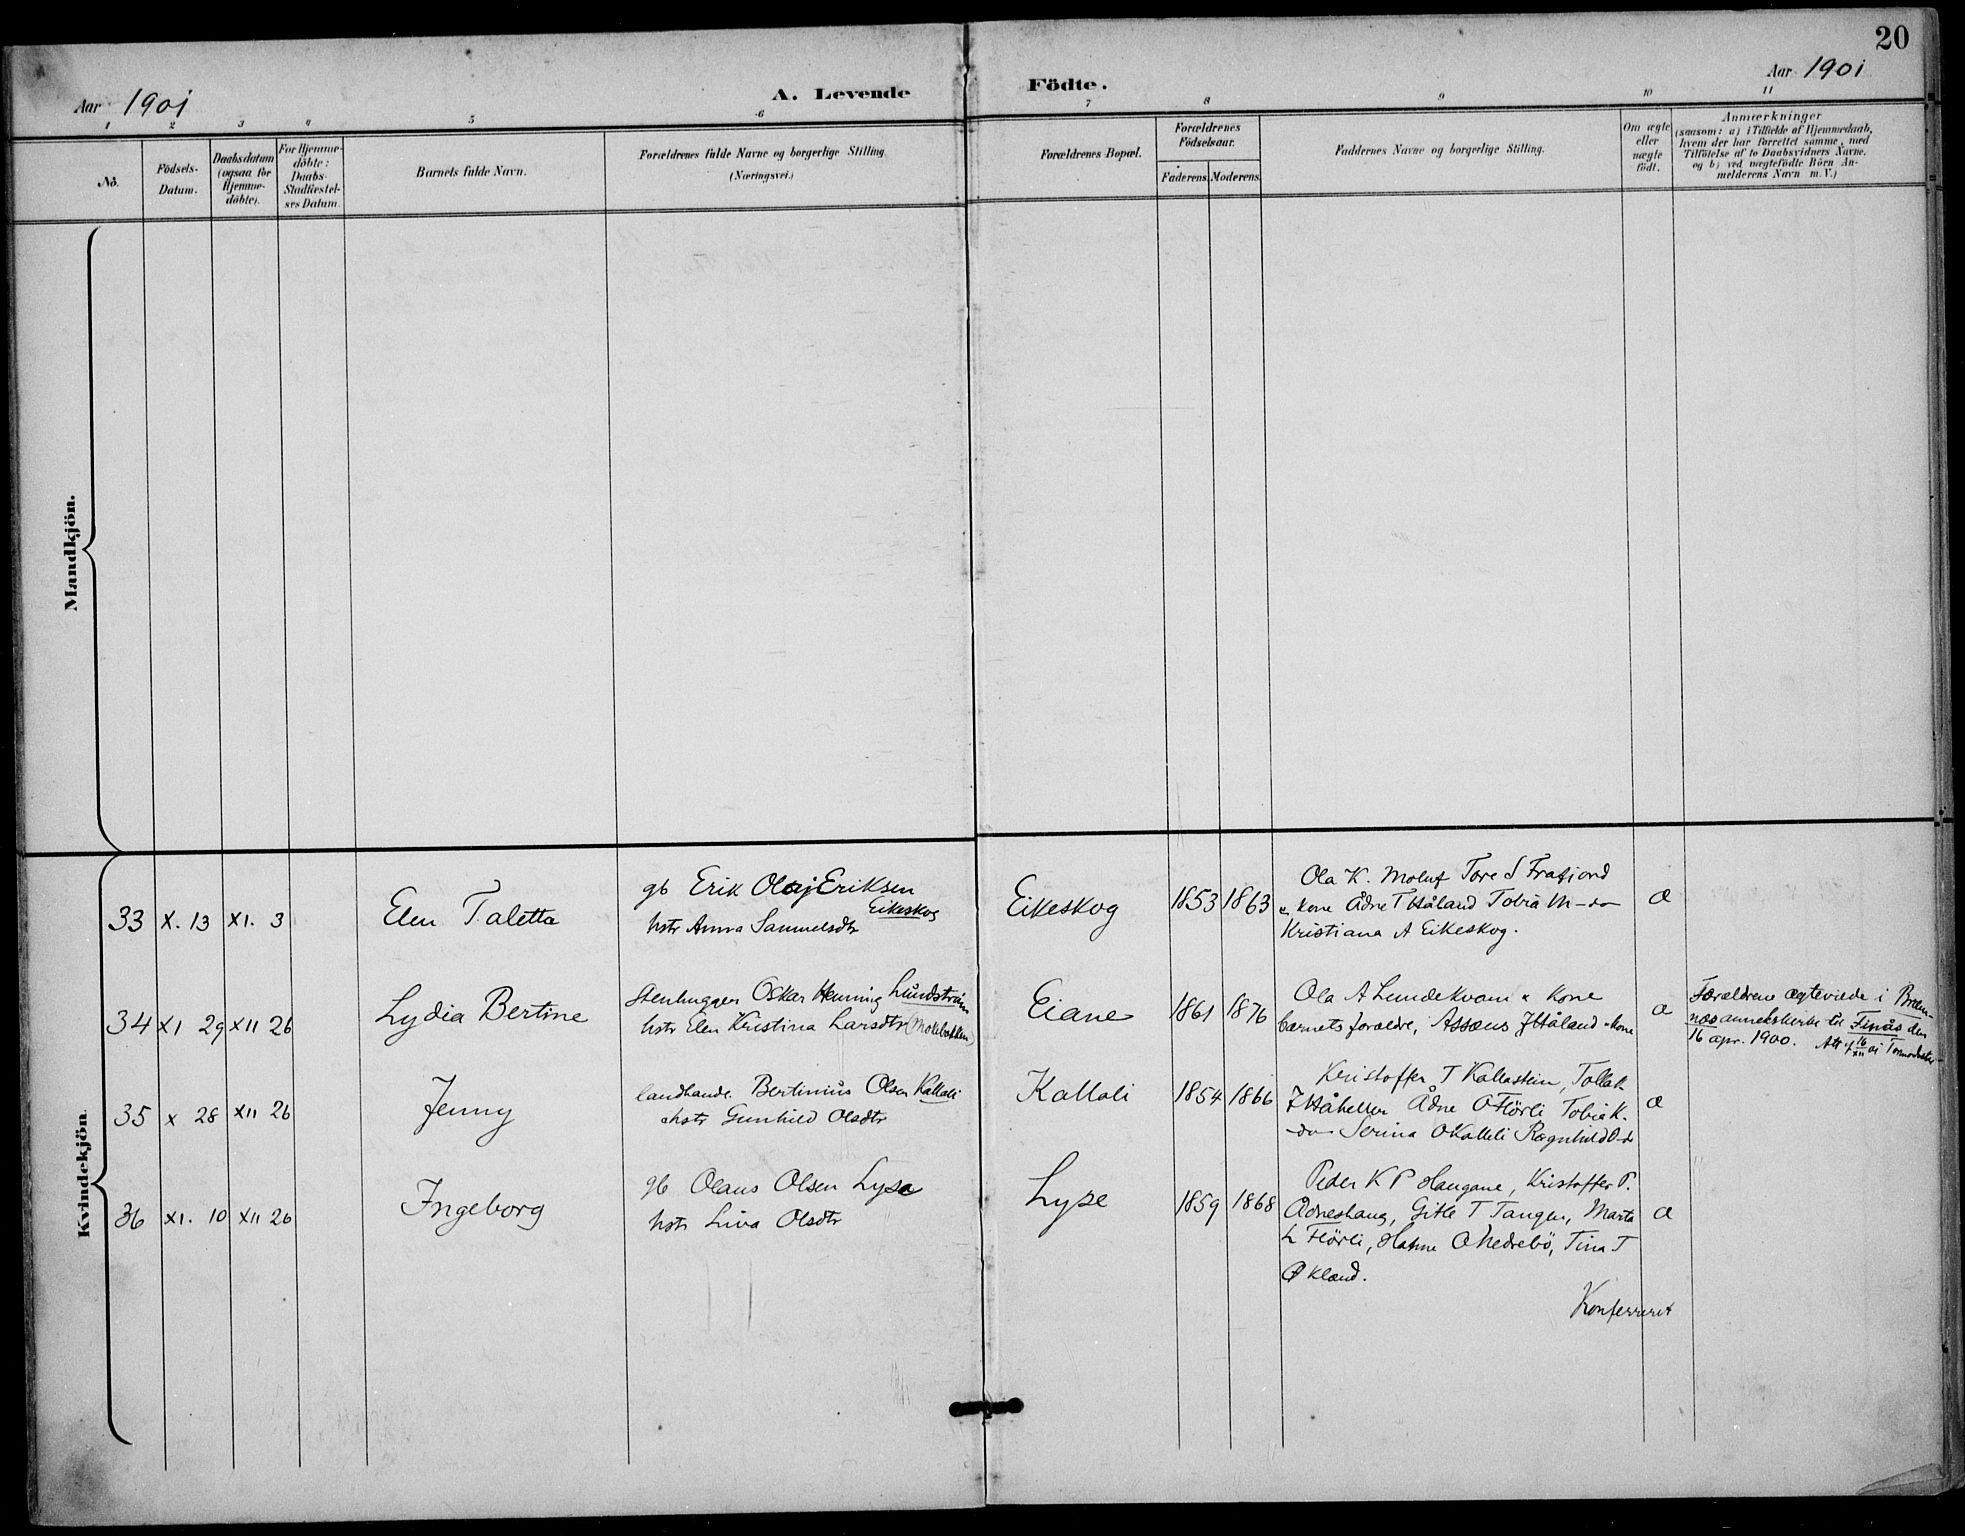 20
Aar 1901
A. Levende Födte.
Aar 1901
1 2 3 4 5 6 7 8 9 10 11
No.
Födsels-
Datum.
Daabsdatum
(ogsaa for
Hjemme-
döbte).
For Hjemme-
döbte:
Daabs-
Stadfæstel-
ses Datum.
Barnets fulde Navn.
Forældrenes fulde Navne og borgerlige Stilling.
(Næringsvei.)
Forældrenes Bopæl.
Forældrenes
Födselsaar.
Faderens. Moderens.
Faddernes Navne og borgerlige Stilling.
Om ægte
eller
uægte
födt.
Anmærkninger
(saasom: a) i Tilfælde af Hjemmedaab,
hvem der har forrettet samme, med
Tilföielse af to Daabsvidners Navne.
og b) ved uægtefödte Börn An-
melderens Navn m.V.)
Mandkjön.
Kvindekjön.
33 X. 13 XI. 3
Elen Taletta
gb Erik Olaj Eriksen
Eikeskog
hstr Anna Samuelsdtr
Eikeskog
1853 1863
Ola K. Moluf Tore S Frafjord
& kone Ådne T Håland Tobia M - do
Kristiana A Eikeskog.
æ
34 XI 29 XII 26
Lydia Bertine
Stenhugger Oskar Henning Lundström
hstr Elen Kristina Larsdtr (Mollebakken)
Eiane
1861 1876
Ola A Lundekvam & kone
barnets foræeldre, Assæus J Håland & kone
æ
Forældrene ægteviede i Bræm-
næs annekskirke til Finås den
16 apr. 1900. Att. f 16/XII 01
35 X 28 XII 26
Jenny
landhandl. Bertinius Olsen Kallali
hstr Gunhild Olsdtr
Kallali
1854 1866
Kristoffer T Kallastein, Tollak
T Håheller Ådne O Flörli Tobia K.
-do- Serina O Kalleli Ragnhild O-do
æ
36 XI. 10 XII 26
Ingeborg
gb Olaus Olsen Lyse
hstr Liva Olsdtr
Lyse
1859 1868
Peder K P Haugane, Kristoffer P.
Ådneshaug, Gitle T Tangen, Marta
L Flörli, Hanne O Nedrebö, Tina T
Økland.
æ
Konfereret